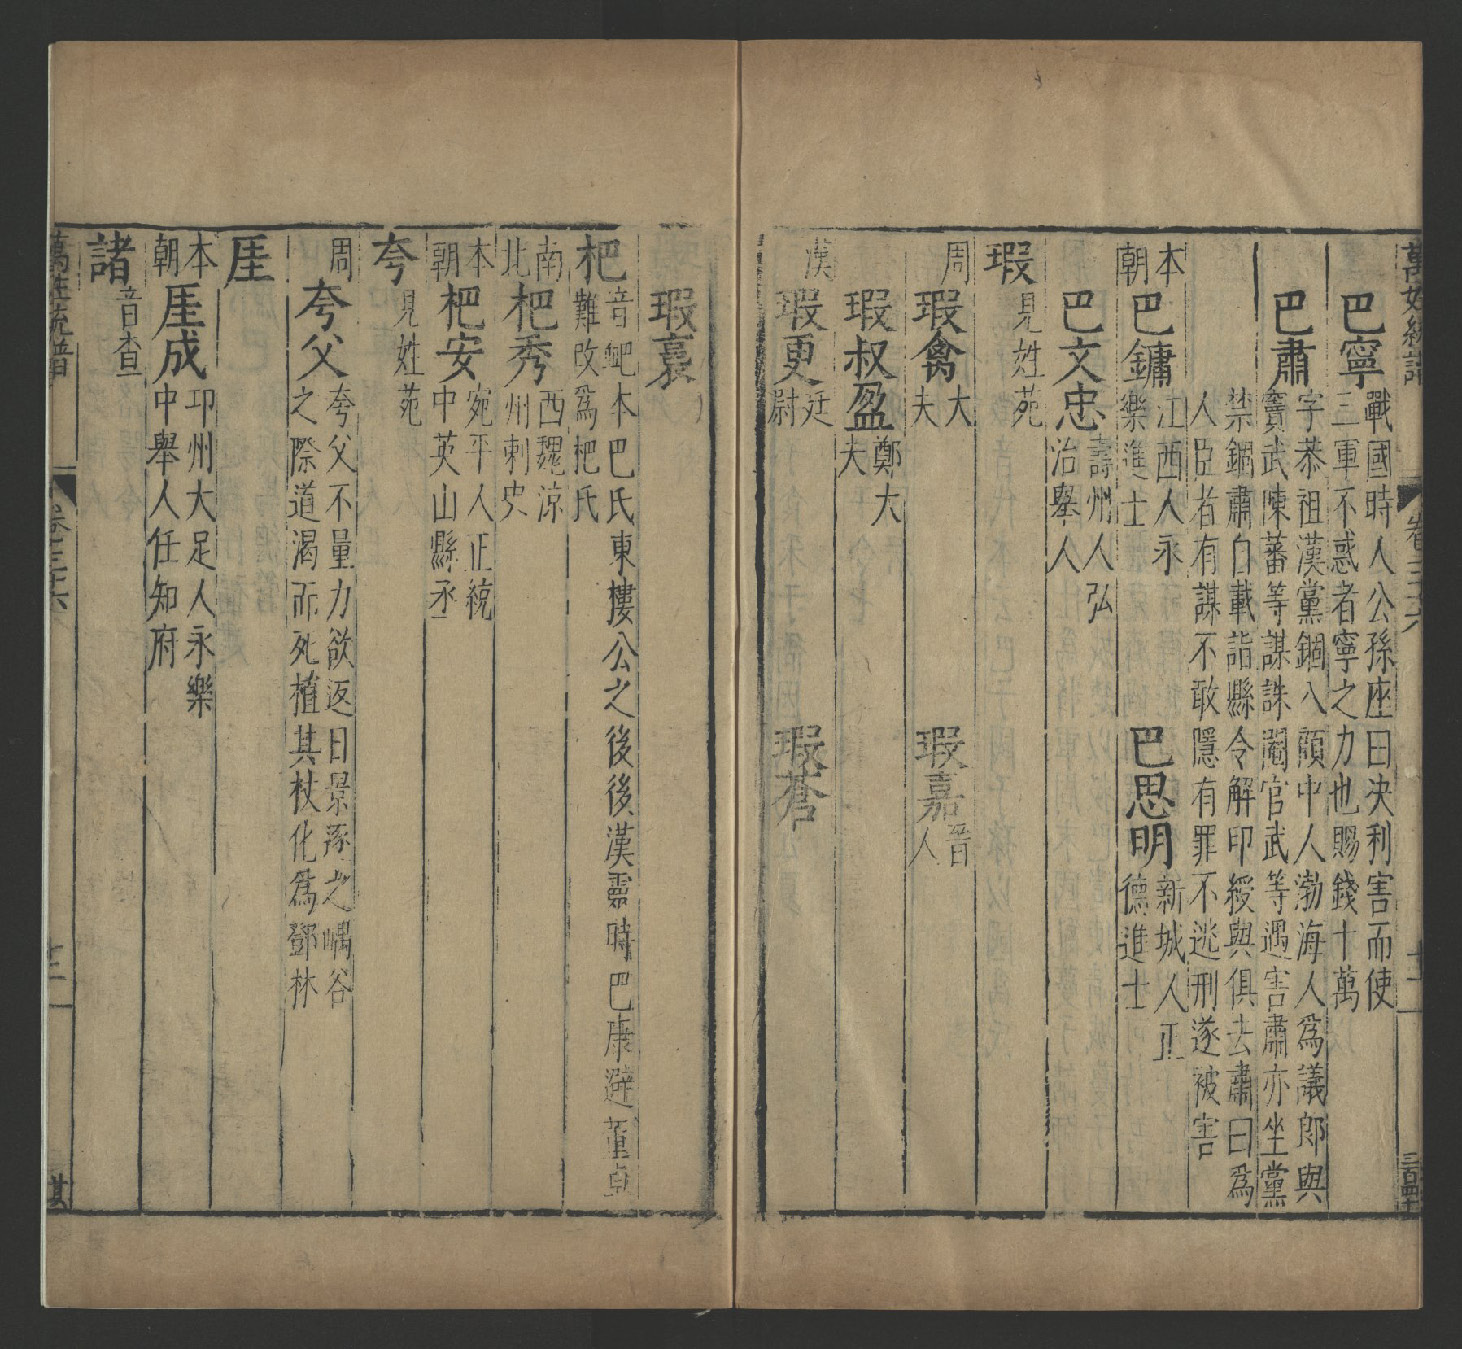 萬姓統譜 卷三十六
巴寧 戰國時人公孫座曰決利害而使
三軍不惑者寧之力也賜錢十萬
巴肅 字恭祖漢黨錮八顧中人渤海人爲議郎與
竇武陳蕃等謀誅閹官武等遇害肅亦坐黨
禁錮肅自載詣縣令解印綬與俱去肅曰爲
人臣者有謀不敢隱有罪不逃刑遂被害
本朝 巴鏞 江西人永
樂進士
巴思明 新城人正
德進士
巴文忠 壽州人弘
治舉人
瑕 見姓苑
周 瑕禽 大
夫
瑕嘉 晉
人
瑕叔盈 鄭大
夫
漢 瑕更 廷
尉
瑕蒼
瑕裏
杷 音鈀本巴氏東樓公之後後漢靈時巴康避董卓
難改爲杷氏
南北 杷秀 西魏涼
州刺史
本朝 杷安 宛平人正統
中英山縣丞
夸 見姓苑
周 夸父 夸父不量力欲返日景逐之嵎谷
之際道渴而死植其杖化爲鄧林
厓
本朝 厓成 卭州大足人永樂
中舉人任知府
諸 音查
萬姓統譜 卷三十六